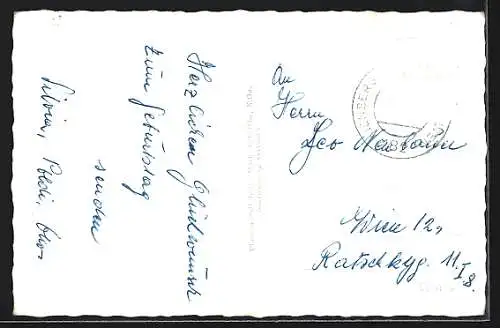 Herzlichen Glückwunsch
zum Geburtstag
senden
Silvia, Poldi,
An
Herrn
Leo
Wien 12,
Ratschkyg. 11
I 8.